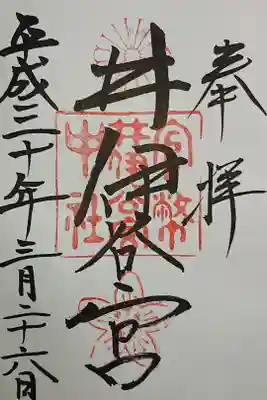 奉拝
井伊谷宮
官幣中社井伊谷宮
平成三十年三月二十六日